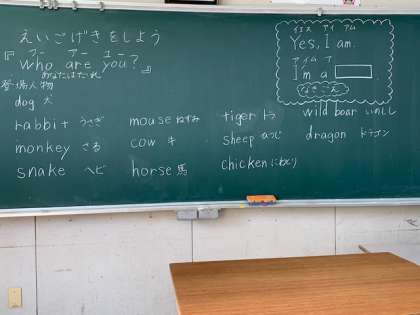 えいごげきをしよう
フー アー ユー
『Who are you?』
あなたはだれ
登場人物
dog 犬
rabbit うさぎ
monkey さる
snake ヘビ
mouse ねずみ
cow 牛
horse 馬
tiger トラ
sheep ひつじ
chicken にわとり
wild boar いのしし
dragon ドラゴン
イエス アイ アム
Yes, I am.
アイム ア
I'm a
なきごえ